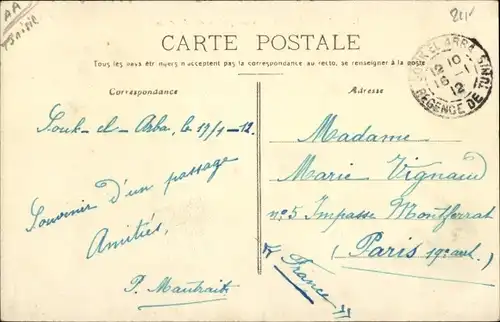 AA
Tunisie
CARTE POSTALE
Tous les pays étrangers n'acceptent pas la correspondance au recto, se renseigner à la poste
Correspondance
Adresse
SOUK EL ARBA
12 10
16 - 1
12
REGENCE DE TUNIS
Souk-el-Arba, le 15/1-12.
Souvenir d'un passage
Amitiés,
P. Mautrait
Madame
Marie Vignaud
n° 5 Impasse Montferrat
(Paris 19e arrt.)
France